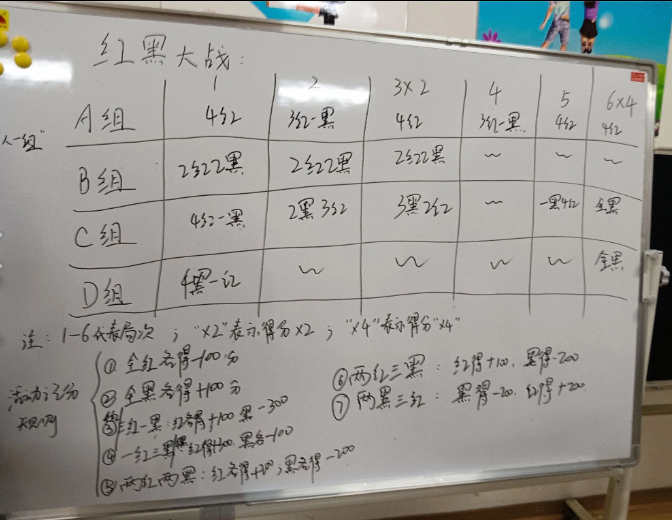 红黑大战:
1 2 3×2 4 5 6×4
A组 4红 3红一黑 4红 3红一黑 4红 4红
人一组"
B组 2红2黑 2红2黑 2红2黑 ~ ~ ~
C组 4红一黑 2黑3红 3黑2红 ~ 一黑4红 全黑
D组 4黑一红 ~ ~ ~ ~ 全黑
注: 1-6代表局次 ; "×2"表示得分×2 ; "×4"表示得分"×4"
活动记分规则
① 全红各得-100分
② 全黑各得+100分
③ 三红一黑:红各得+100 黑-300
④ 一红三黑 红得+300 黑各-100
⑤ 两红两黑:红各得+200;黑各得-200
⑥ 两红三黑: 红得+100, 黑得-200
⑦ 两黑三红: 黑得-200, 红得+200